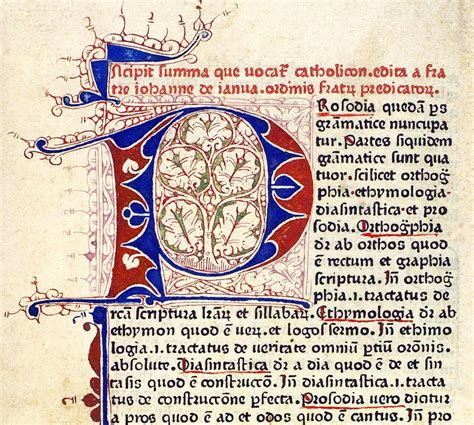 Incipit summa que vocaꝶ catholicon. edita a fra
tre iohanne de ianua. ordinis fratrū predicatoꝝ.
PRosodia quedam p̄s
gramatice nuncupa
tur. Partes siquidem
grāmatice sunt qua
tuor. scilicet orthog̃
phia. ethymologia.
diasintastica. et pro
sodia. Orthog̃phia
dr̄ ab orthos quod
ē rectum et graphia
scriptura. Jn orthog̃
phia .i. tractatus de
rcā scriptura lr̄aꝝ et sillabaꝝ. Ethymologia dr̄ ab
ethymon quod ē veꝝ et logos sermo. Jn ethimo
logia .i. tractatus de veritate omniū ꝑtiū orōnis.
absolute. Diasintastica dr̄ a dia quod ē de et sin
tasis quod ē constructō. Jn̄ diasintastica .i. tracta
tus de constructōne ꝑfecta. Prosodia vero dicitur
a pros quod ē ad et odos quod ē cantus. Jn̄ pro